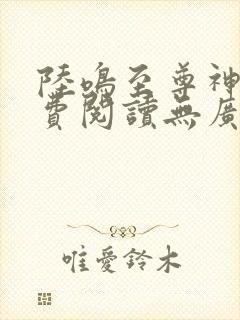 陸鳴至尊神
費閱讀無廣
唯愛鈴木